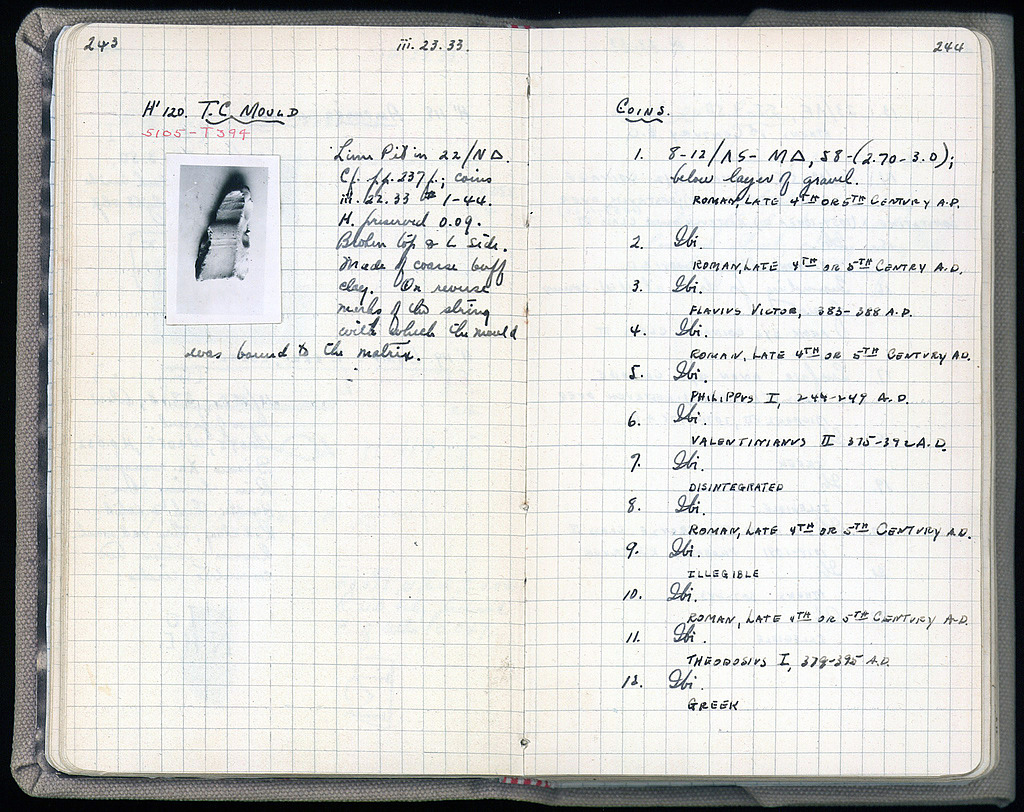 243
iii. 23. 33.
H' 120. T.C. MOULD
S105-T394
Lime Pit in 22/ΝΔ.
Cf. pp. 237 f.; coins
iii. 22.33 # 1-44.
H. preserved 0.09.
Broken top & L side.
Made of coarse buff
clay. On reverse
marks of the string
with which the mould
was bound to the matrix.
244
COINS.
1. 8-12/ΛΣ-ΜΔ, S8-(2.70-3.0);
below layer of gravel.
ROMAN, LATE 4TH OR 5TH CENTURY A.D.
2. Ibi.
ROMAN, LATE 4TH OR 5TH CENTRY A.D.
3. Ibi.
FLAVIUS VICTOR, 383-388 A.D.
4. Ibi.
ROMAN, LATE 4TH OR 5TH CENTURY A.D.
5. Ibi.
PHILIPPUS I, 244-249 A.D.
6. Ibi.
VALENTINIANUS II 375-392 A.D.
7. Ibi.
DISINTEGRATED
8. Ibi.
ROMAN, LATE 4TH OR 5TH CENTURY A.D.
9. Ibi.
ILLEGIBLE
10. Ibi.
ROMAN, LATE 4TH OR 5TH CENTURY A.D.
11. Ibi.
THEODOSIUS I, 379-395 A.D.
12. Ibi.
GREEK